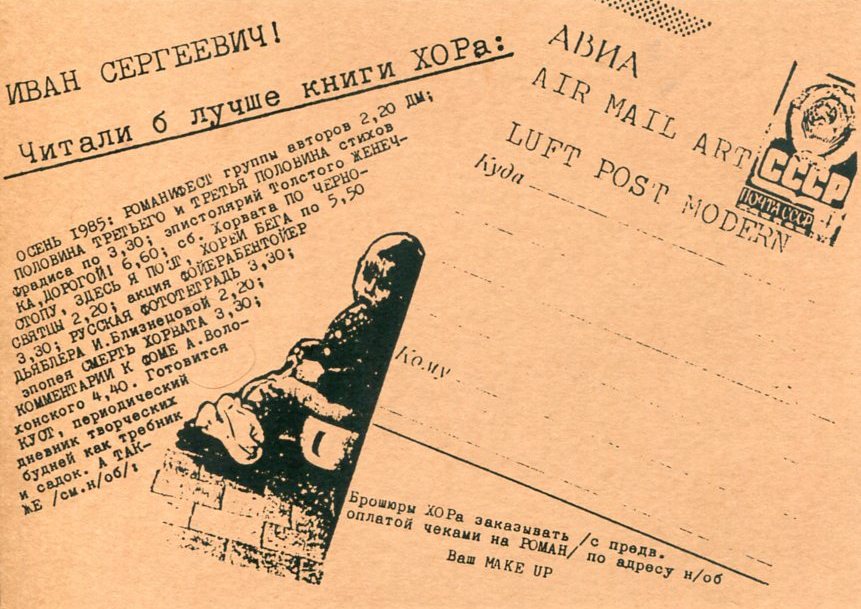 ИВАН СЕРГЕЕВИЧ!
Читали б лучше книги ХОРа:
ОСЕНЬ 1985: РОМАНИФЕСТ группы авторов 2,20 ДМ;
ПОЛОВИНА ТРЕТЬЕГО и ТРЕТЬЯ ПОЛОВИНА стихов
Фрадиса по 3,30; эпистолярий Толстого ЖЕНЕЧ-
КА,ДОРОГОЙ! 6,60; сб. Хорвата ПО ЧЕРНО-
СТОПУ, ЗДЕСЬ Я ПОЭТ, ХОРЕЙ БЕГА по 5,50
СВЯТЦЫ 2,20; акция ФОЙЕРАБЕНТОЙЕР
3,30; РУССКАЯ ФОТОТЕТРАДЬ 3,30;
ДЬЯБЛЕРА И.Близнецовой 2,20;
эпопея СМЕРТЬ ХОРВАТА 3,30;
КОММЕНТАРИИ К ФОМЕ А.Воло-
хонского 4,40. Готовится
КУСТ, периодический
дневник творческих
будней как требник
и садок. А ТАК-
ЖЕ /см.н/об/;
АВИА
AIR MAIL ART
LUFT POST MODERN
СССР
ПОЧТА СССР
Куда
Кому
Брошюры ХОРа заказывать /с предв.
оплатой чеками на РОМАН/ по адресу н/об
Ваш MAKE UP